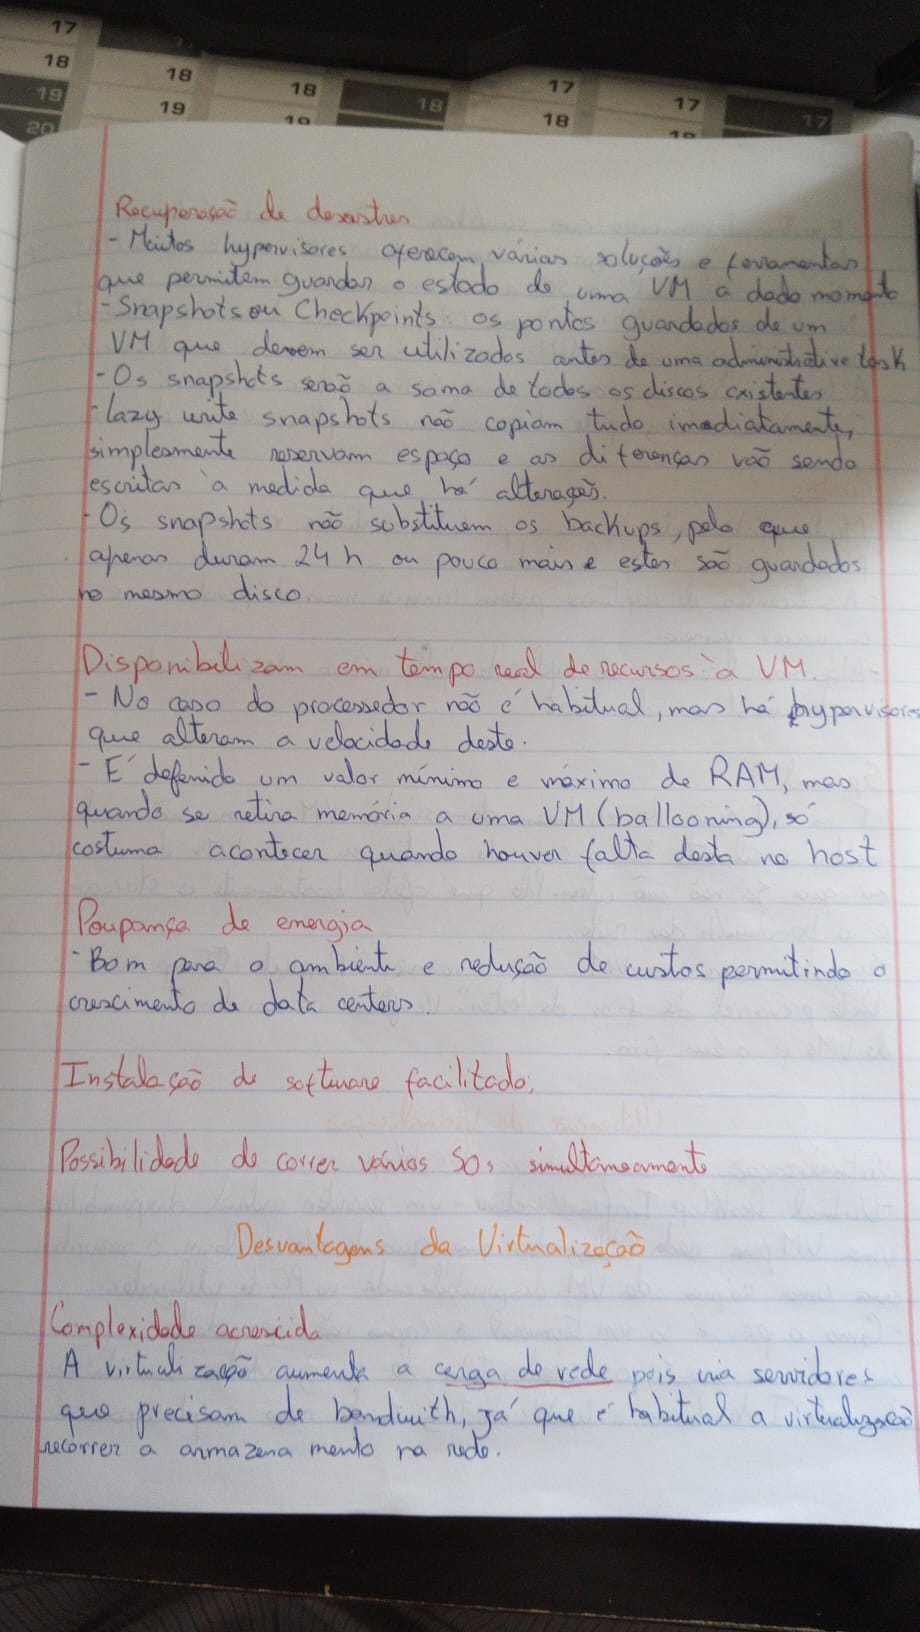 17
18 18 18 18 17 17 17
19 19 19 18 18
20
Recuperação de desastres
- Muitos hypervisores oferecem várias soluções e ferramentas
que permitem guardar o estado de uma VM a dado momento
- Snapshots ou Checkpoints: os pontos guardados de um
VM que devem ser utilizados antes de uma administrative task
- Os snapshots serão a soma de todos os discos existentes
- lazy write snapshots não copiam tudo imediatamente,
simplesmente reservam espaço e as diferenças vão sendo
escritas à medida que há alterações.
- Os snapshots não substituem os backups, pelo que
apenas duram 24 h ou pouco mais e estes são guardados
no mesmo disco.
Disponibilizam em tempo real de recursos à VM.
- No caso do processedor não é habitual, mas há hypervisores
que alteram a velocidade deste.
- É defenido um valor mínimo e máximo de RAM, mas
quando se retira memória a uma VM (ballooning), só
costuma acontecer quando houver falta desta no host
Poupança de energia
- Bom para o ambiente e redução de custos permitindo o
crescimento de data centers.
Instalação de software facilitado;
Possibilidade de correr vários SOs simultaneamente
Desvantagens da Virtualização
Complexidade acrescida
A virtualização aumenta a carga de rede pois cria servidores
que precisam de bandwith, já que é habitual a virtualização
recorrer a armazenamento na rede.